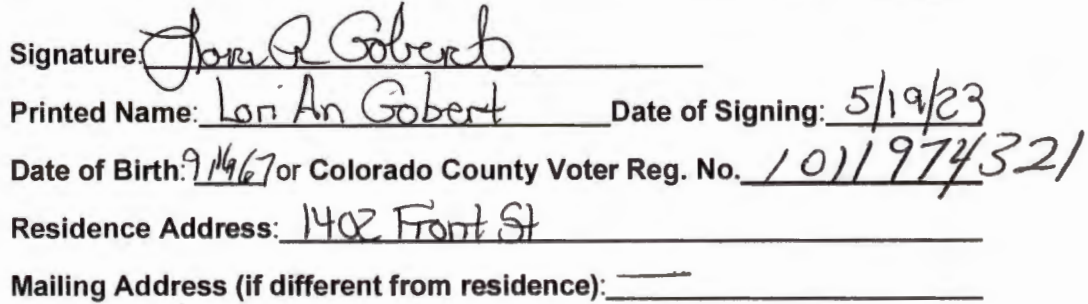 Signature: Lori A Gobert
Printed Name: Lori An Gobert Date of Signing: 5/19/23
Date of Birth: 9/14/67 or Colorado County Voter Reg. No. 1011974321
Residence Address: 1402 Front St
Mailing Address (if different from residence): —